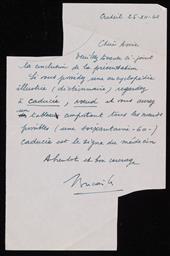 Créteil 25-XII-62
Cher Amie
Veuillez trouver ci-joint
la conclusion de la présentation
Si vous possédez une encyclopédie
illustrée (dictionnaire), regardez
à caducée, et vous aurez
un tableau comportant tous les
possibles (une soixantaine -60-)
caducée est le signe du médecin
A bientôt et bon courage